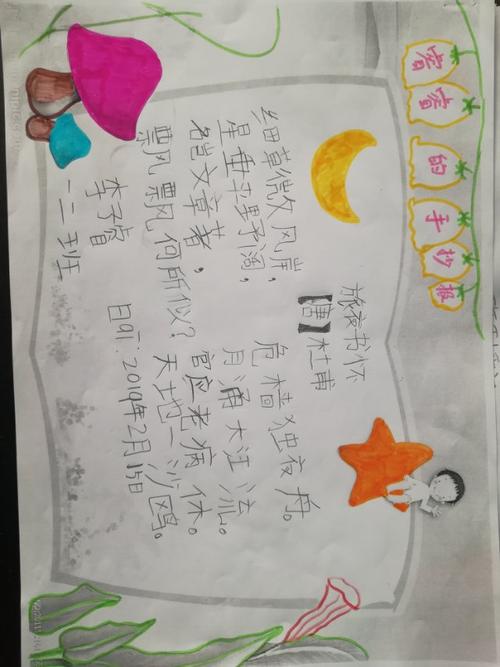 睿睿的手抄报
旅夜书怀
【唐】杜甫
细草微风岸，危樯独夜舟。
星垂平野阔，月涌大江流。
名岂文章著，官应老病休。
飘飘何所似？天地一沙鸥。
李子睿 日听：2019年2月15日
一二班